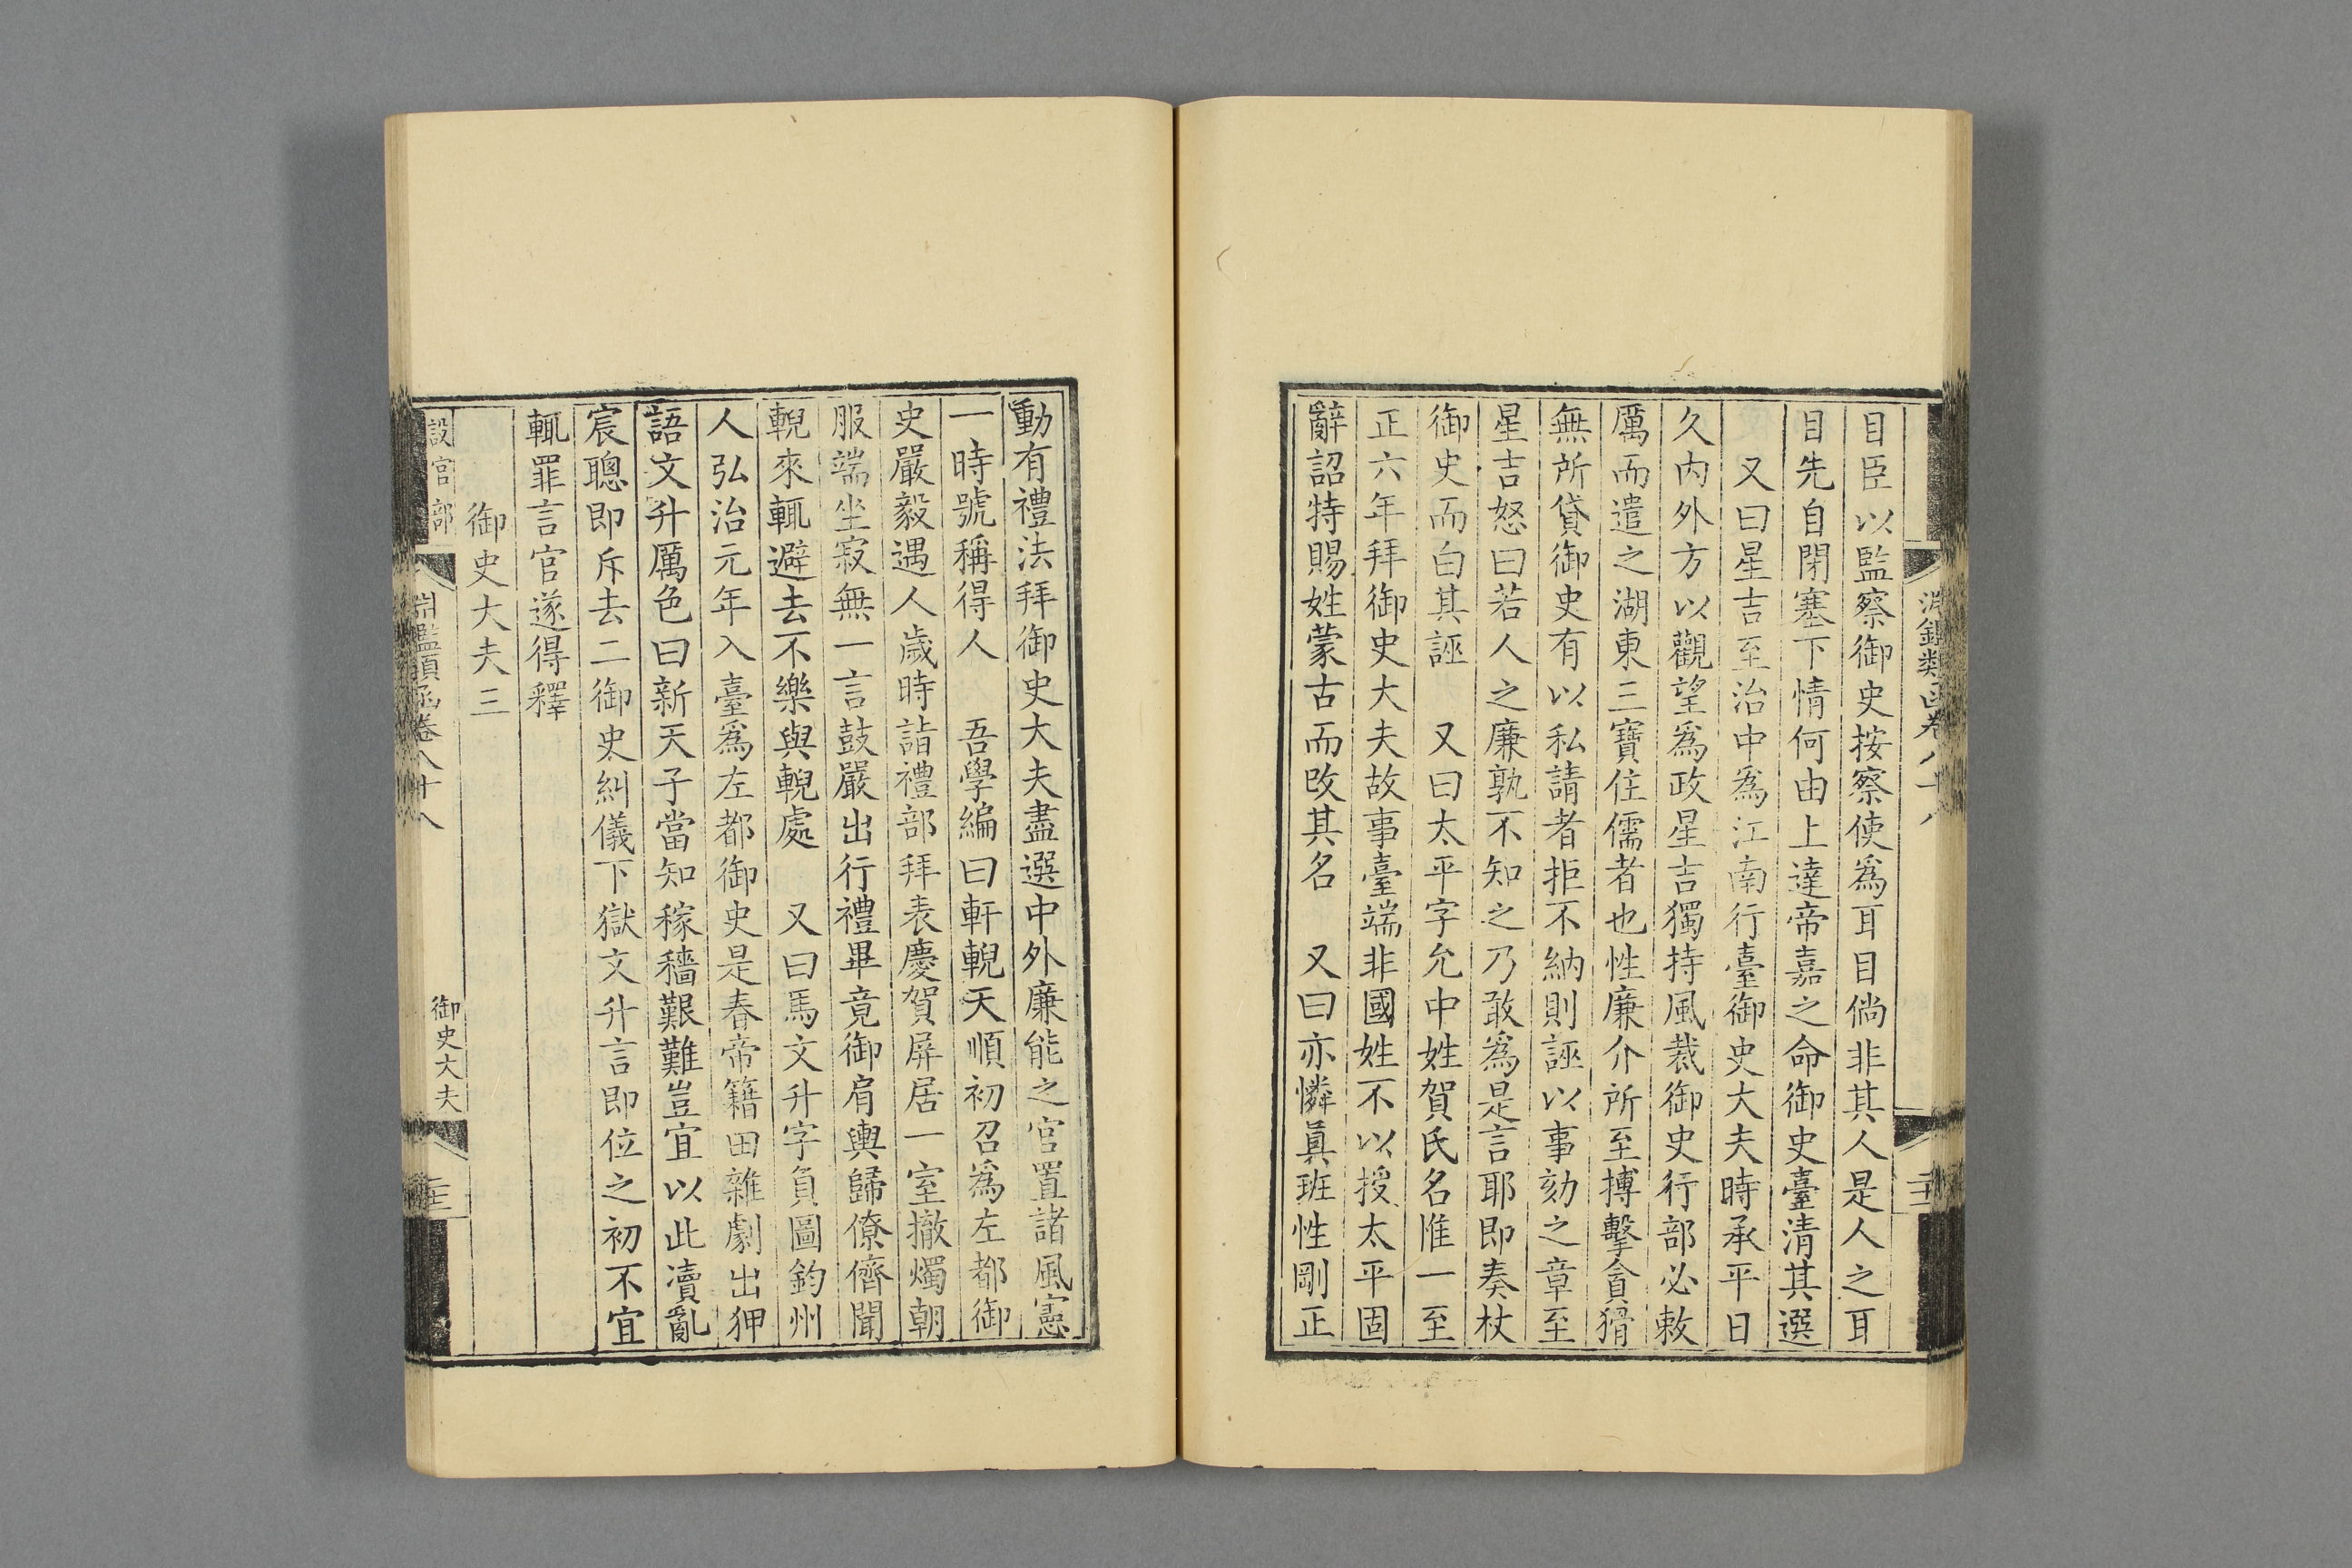 目臣以監察御史按察使爲耳目倘非其人是人之耳
目先自閉塞下情何由上達帝嘉之命御史臺清其選
又曰星吉至治中爲江南行臺御史大夫時承平日
久內外方以觀望爲政星吉獨持風裁御史行部必敕
厲而遣之湖東三寶住儒者也性廉介所至搏擊貪猾
無所貸御史有以私請者拒不納則誣以事劾之章至
星吉怒曰若人之廉孰不知之乃敢爲是言耶即奏杖
御史而白其誣 又曰太平字允中姓賀氏名惟一至
正六年拜御史大夫故事臺端非國姓不以授太平固
辭詔特賜姓蒙古而改其名 又曰亦憐眞班性剛正
動有禮法拜御史大夫盡選中外廉能之官置諸風憲
一時號稱得人 吾學編曰軒輗天順初召爲左都御
史嚴毅遇人歲時詣禮部拜表慶賀屏居一室撤燭朝
服端坐寂無一言鼓嚴出行禮畢竟御肩輿歸僚儕聞
輗來輒避去不樂與輗處 又曰馬文升字負圖鈞州
人弘治元年入臺爲左都御史是春帝籍田雜劇出狎
語文升厲色曰新天子當知稼穡艱難豈宜以此凟亂
宸聰即斥去二御史糾儀下獄文升言即位之初不宜
輒罪言官遂得釋
御史大夫三
設官部
淵鑑類函卷八十八
御史大夫